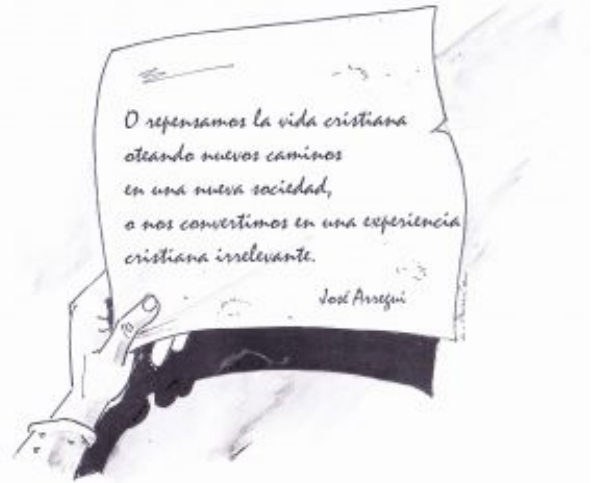 O repensamos la vida cristiana
oteando nuevos caminos
en una nueva sociedad,
o nos convertimos en una experiencia
cristiana irrelevante.
José Arregui